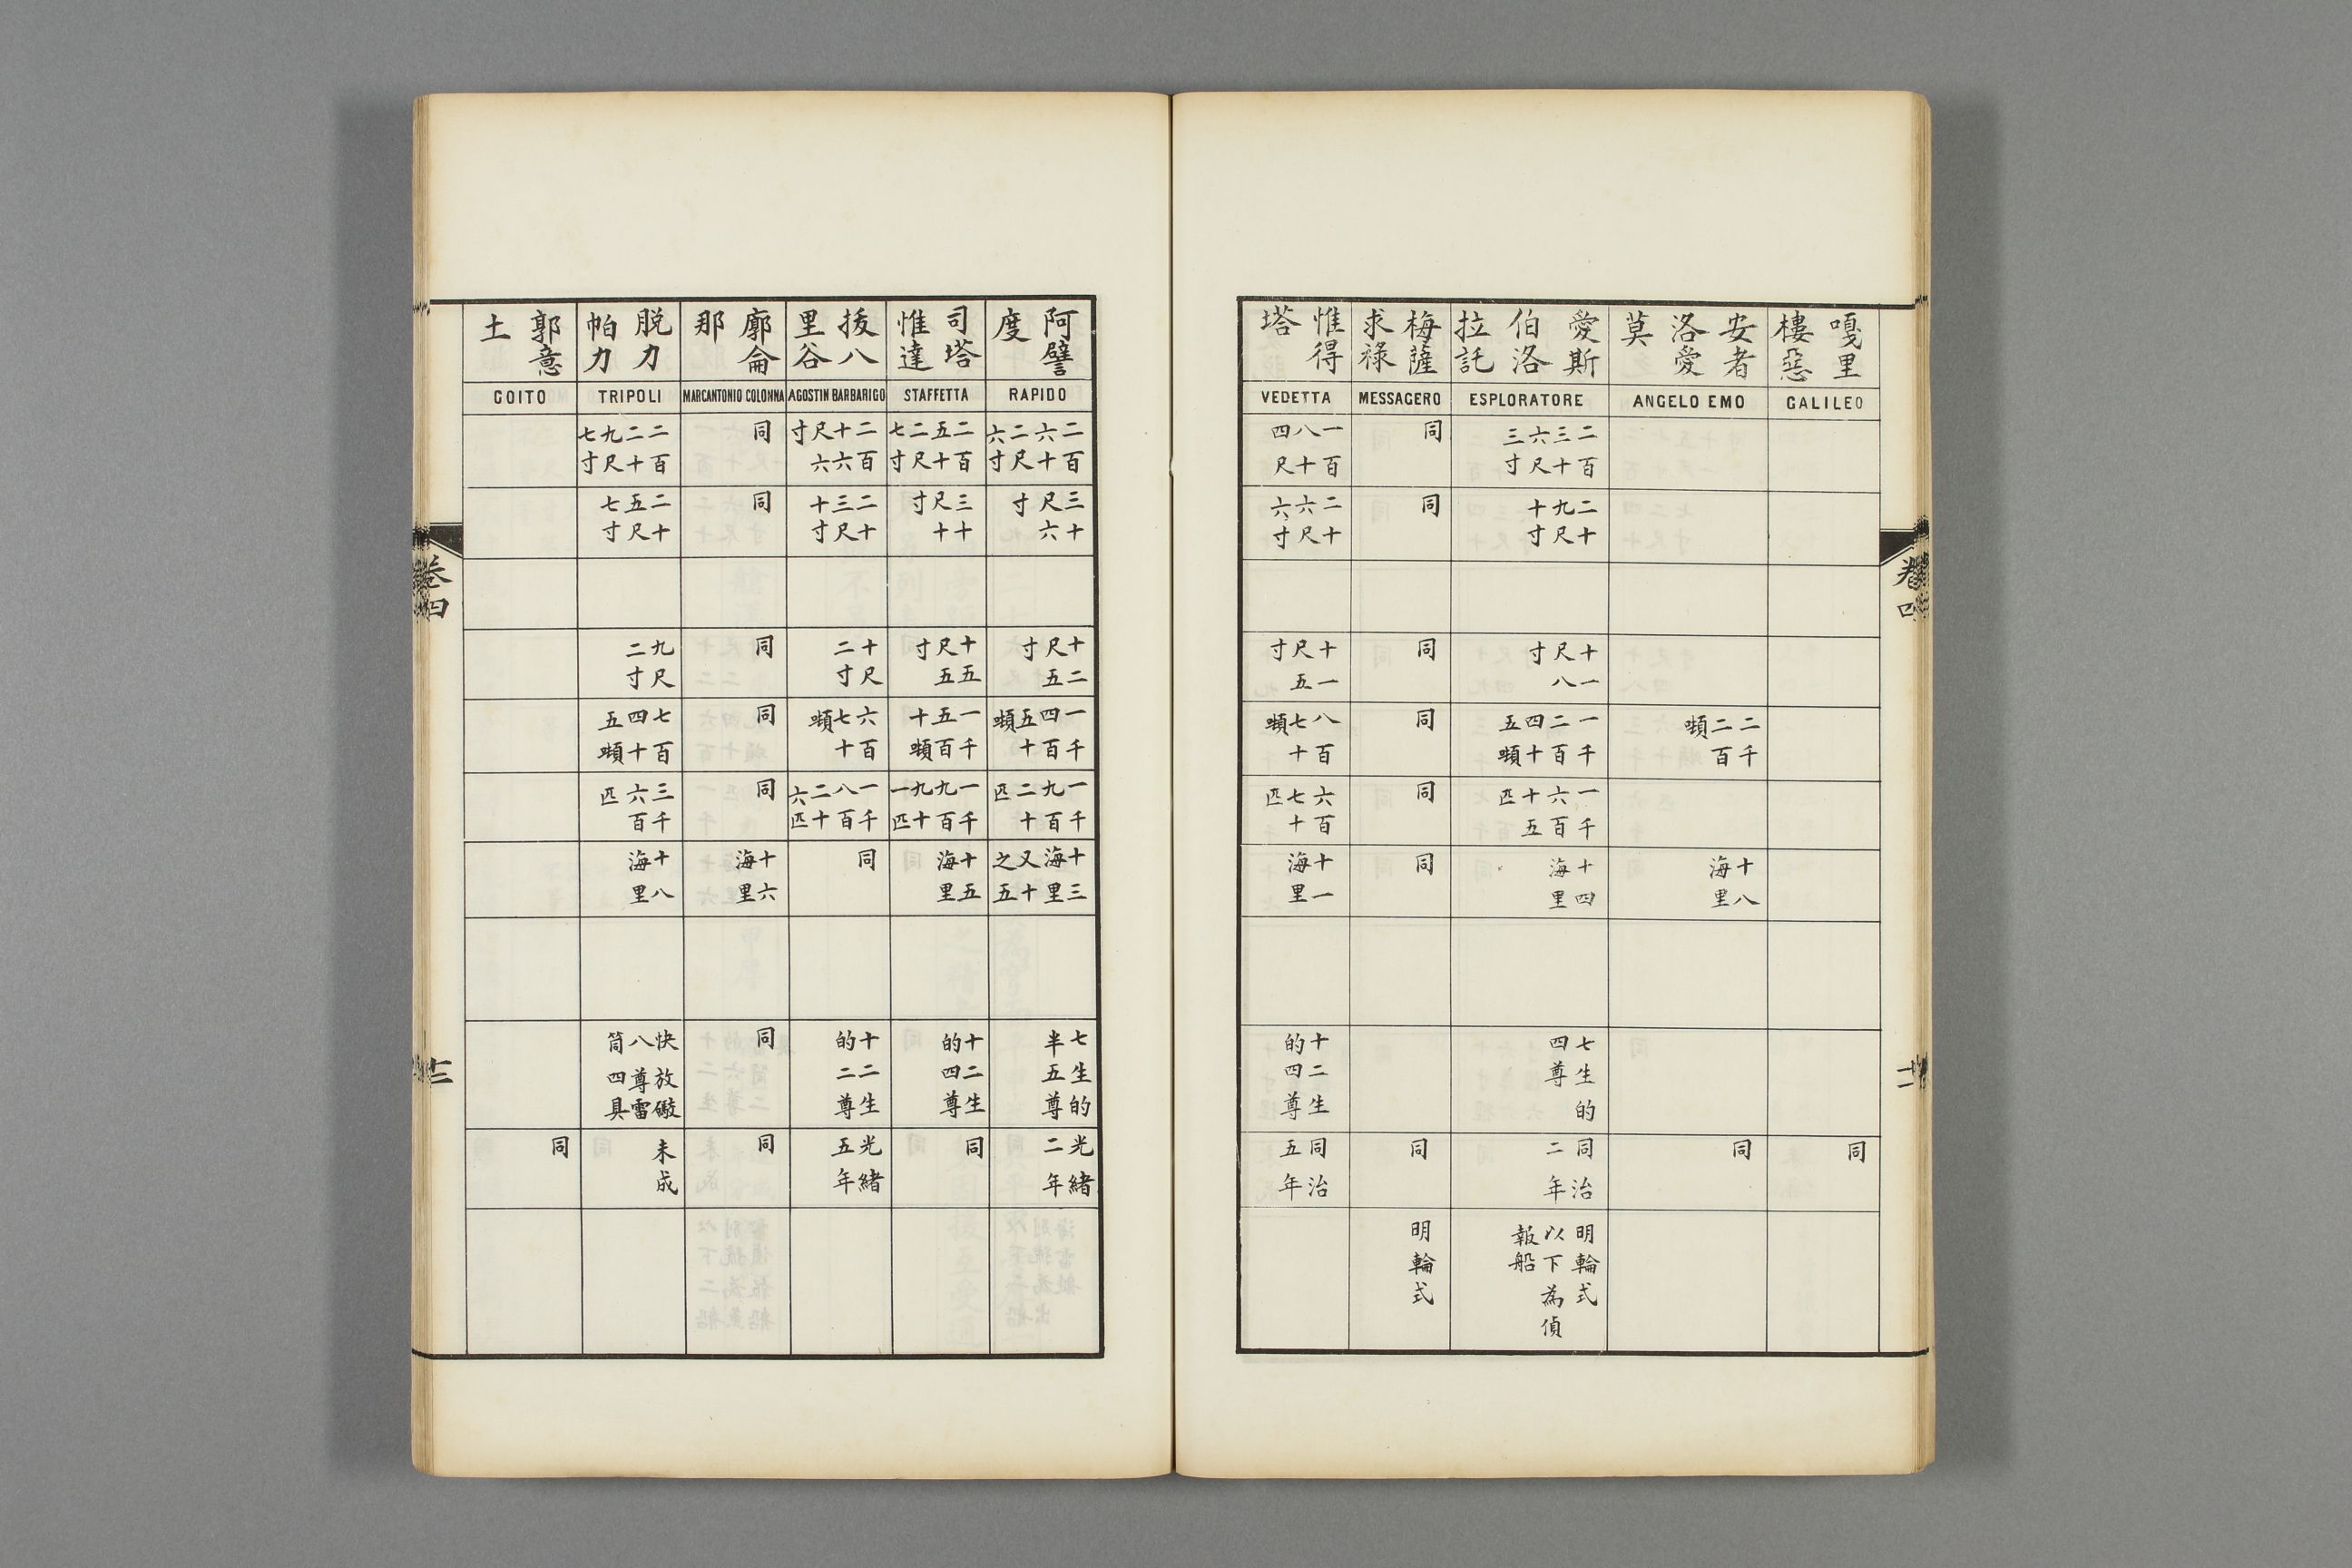 卷四
十一
嘎里樓惡
GALILEO
同
安者洛愛莫
ANGELO EMO
二千二百噸
十八海里
同
愛斯伯洛拉託
ESPLORATORE
二百三十六尺三寸
二十九尺十寸
十一尺八寸
一千二百四十五噸
一千六百十五匹
十四海里
七生的四尊
同治二年
明輪式以下為偵報船
梅薩求祿
MESSAGERO
同
同
同
同
同
同
同
明輪式
惟得塔
VEDETTA
一百八十四尺
二十六尺六寸
十一尺五寸
八百七十噸
六百七十匹
十一海里
十二生的四尊
同治五年
阿譬度
RAPIDO
二百六十二尺六寸
三十尺六寸
十二尺五寸
一千四百五十噸
一千九百二十匹
十三海里又十之五
七生的半五尊
光緒二年
司塔惟達
STAFFETTA
二百五十二尺七寸
三十尺十寸
十五尺五寸
一千五百十噸
一千九百九十一匹
十五海里
十二生的四尊
同
拔八里谷
AGOSTIN BARBARIGO
二百十六尺六寸
二十三尺十寸
十尺二寸
六百七十噸
一千八百二十六匹
同
十二生的二尊
光緒五年
廓侖那
MARCANTONIO COLONNA
同
同
同
同
同
十六海里
同
同
脫力帕力
TRIPOLI
二百二十九尺七寸
二十五尺七寸
九尺二寸
七百四十五噸
三千六百匹
十八海里
快放礮八尊雷筒四具
未成
郭意土
GOITO
同
卷四
十二